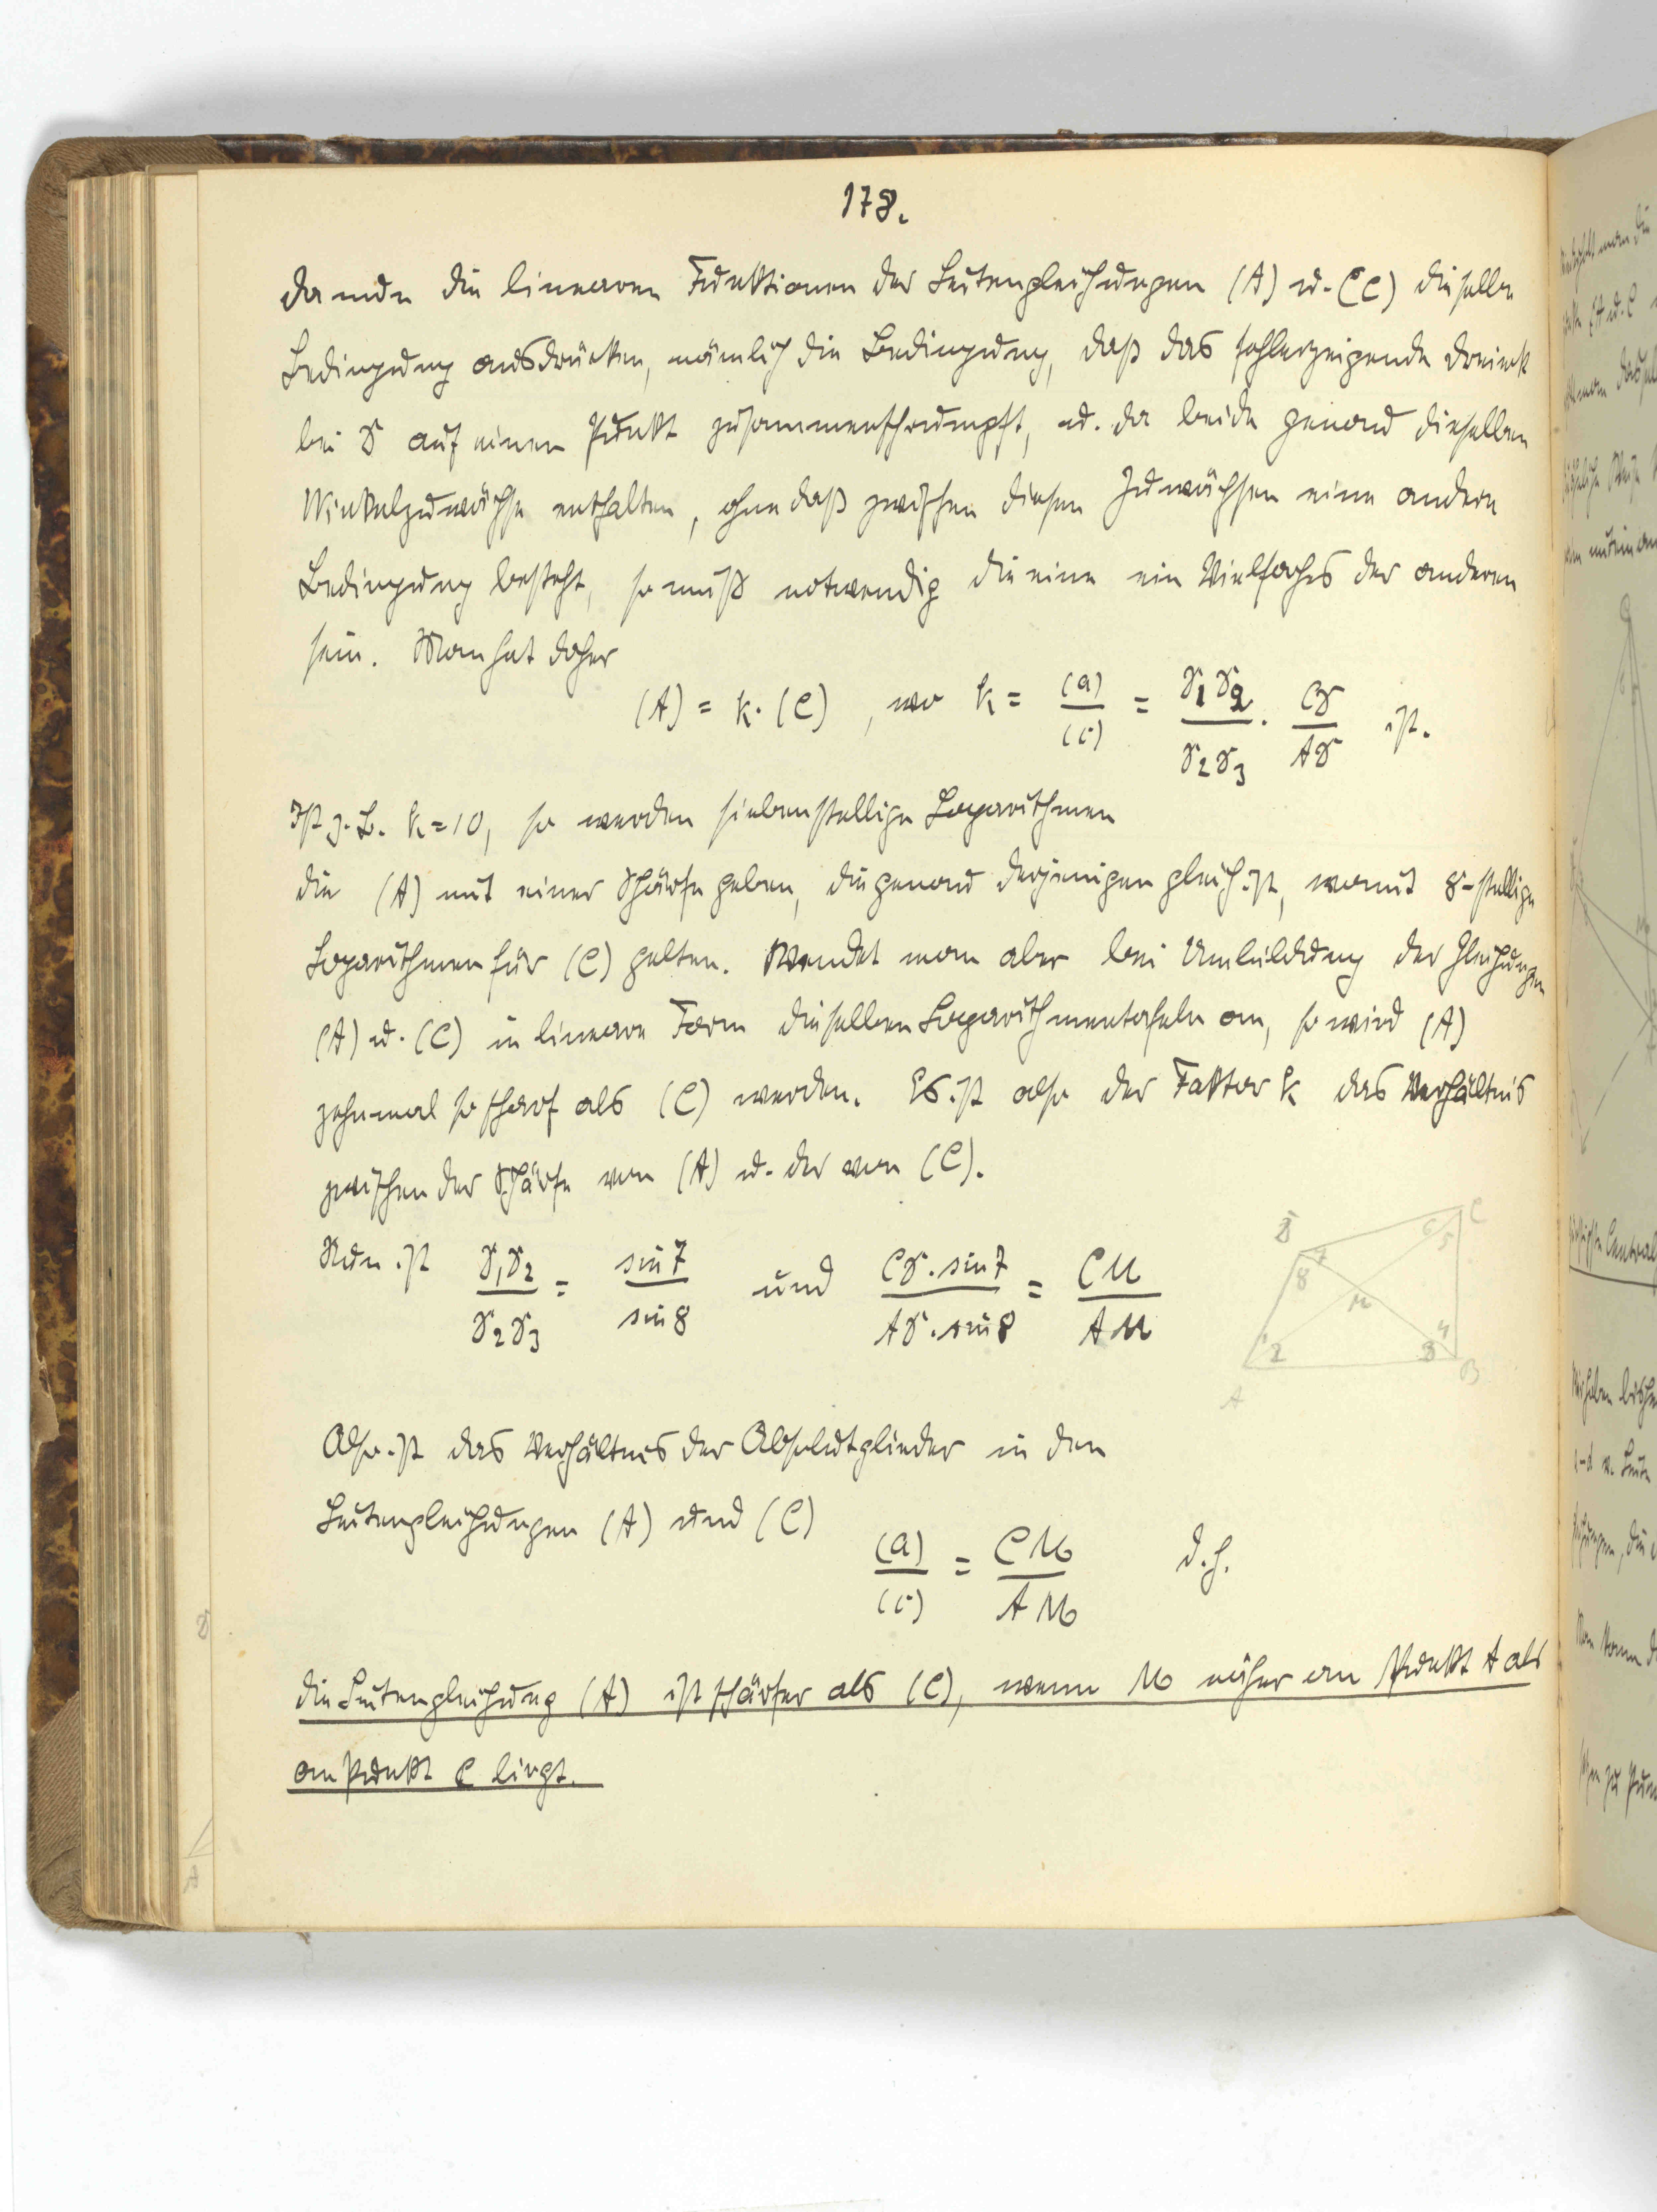 178.
da nun die linearen Funktionen der Seitengleichungen (A) u. (C) dieselbe
Bedingung ausdrücken, nämlich die Bedingung, daß das fehlerzeigende Dreieck
bei D auf einen Punkt zusammenschrumpft, u. da beide genau dieselben
Winkelzuwächse enthalten, ohne daß zwischen diesen Zuwächsen eine andere
Bedingung besteht, so muß notwendig die eine ein Vielfaches der anderen
sein. Man hat daher
(A) = k. (C) , wo k = (a)/(c) = D1D2/D2D3 . CD/AD ist.
Ist z. B. k=10, so werden siebenstellige Logarithmen
die (A) mit einer Schärfe geben, die genau derjenigen gleich ist, womit 8-stellige
Logarithmen für (C) gelten. Wendet man aber bei Umbildung der Gleichungen
(A) u. (C) in lineare Form dieselben Logarithmentafeln an, so wird (A)
zehnmal so scharf als (C) werden. Es ist also der Faktor k das Verhältnis
zwischen der Schärfe von (A) u. der von (C).
Nun ist D1D2/D2D3 = sin 7/sin 8 und CD . sin 7/AD . sin 8 = CM/AM
D C 6 5 7 8 M 1 2 3 4 A B
Also ist das Verhältnis der Absolutglieder in den
Seitengleichungen (A) und (C)
(a)/(c) = CM/AM d. h.
die Seitengleichung (A) ist schärfer als (C), wenn M näher an Punkt A als
an Punkt C liegt.